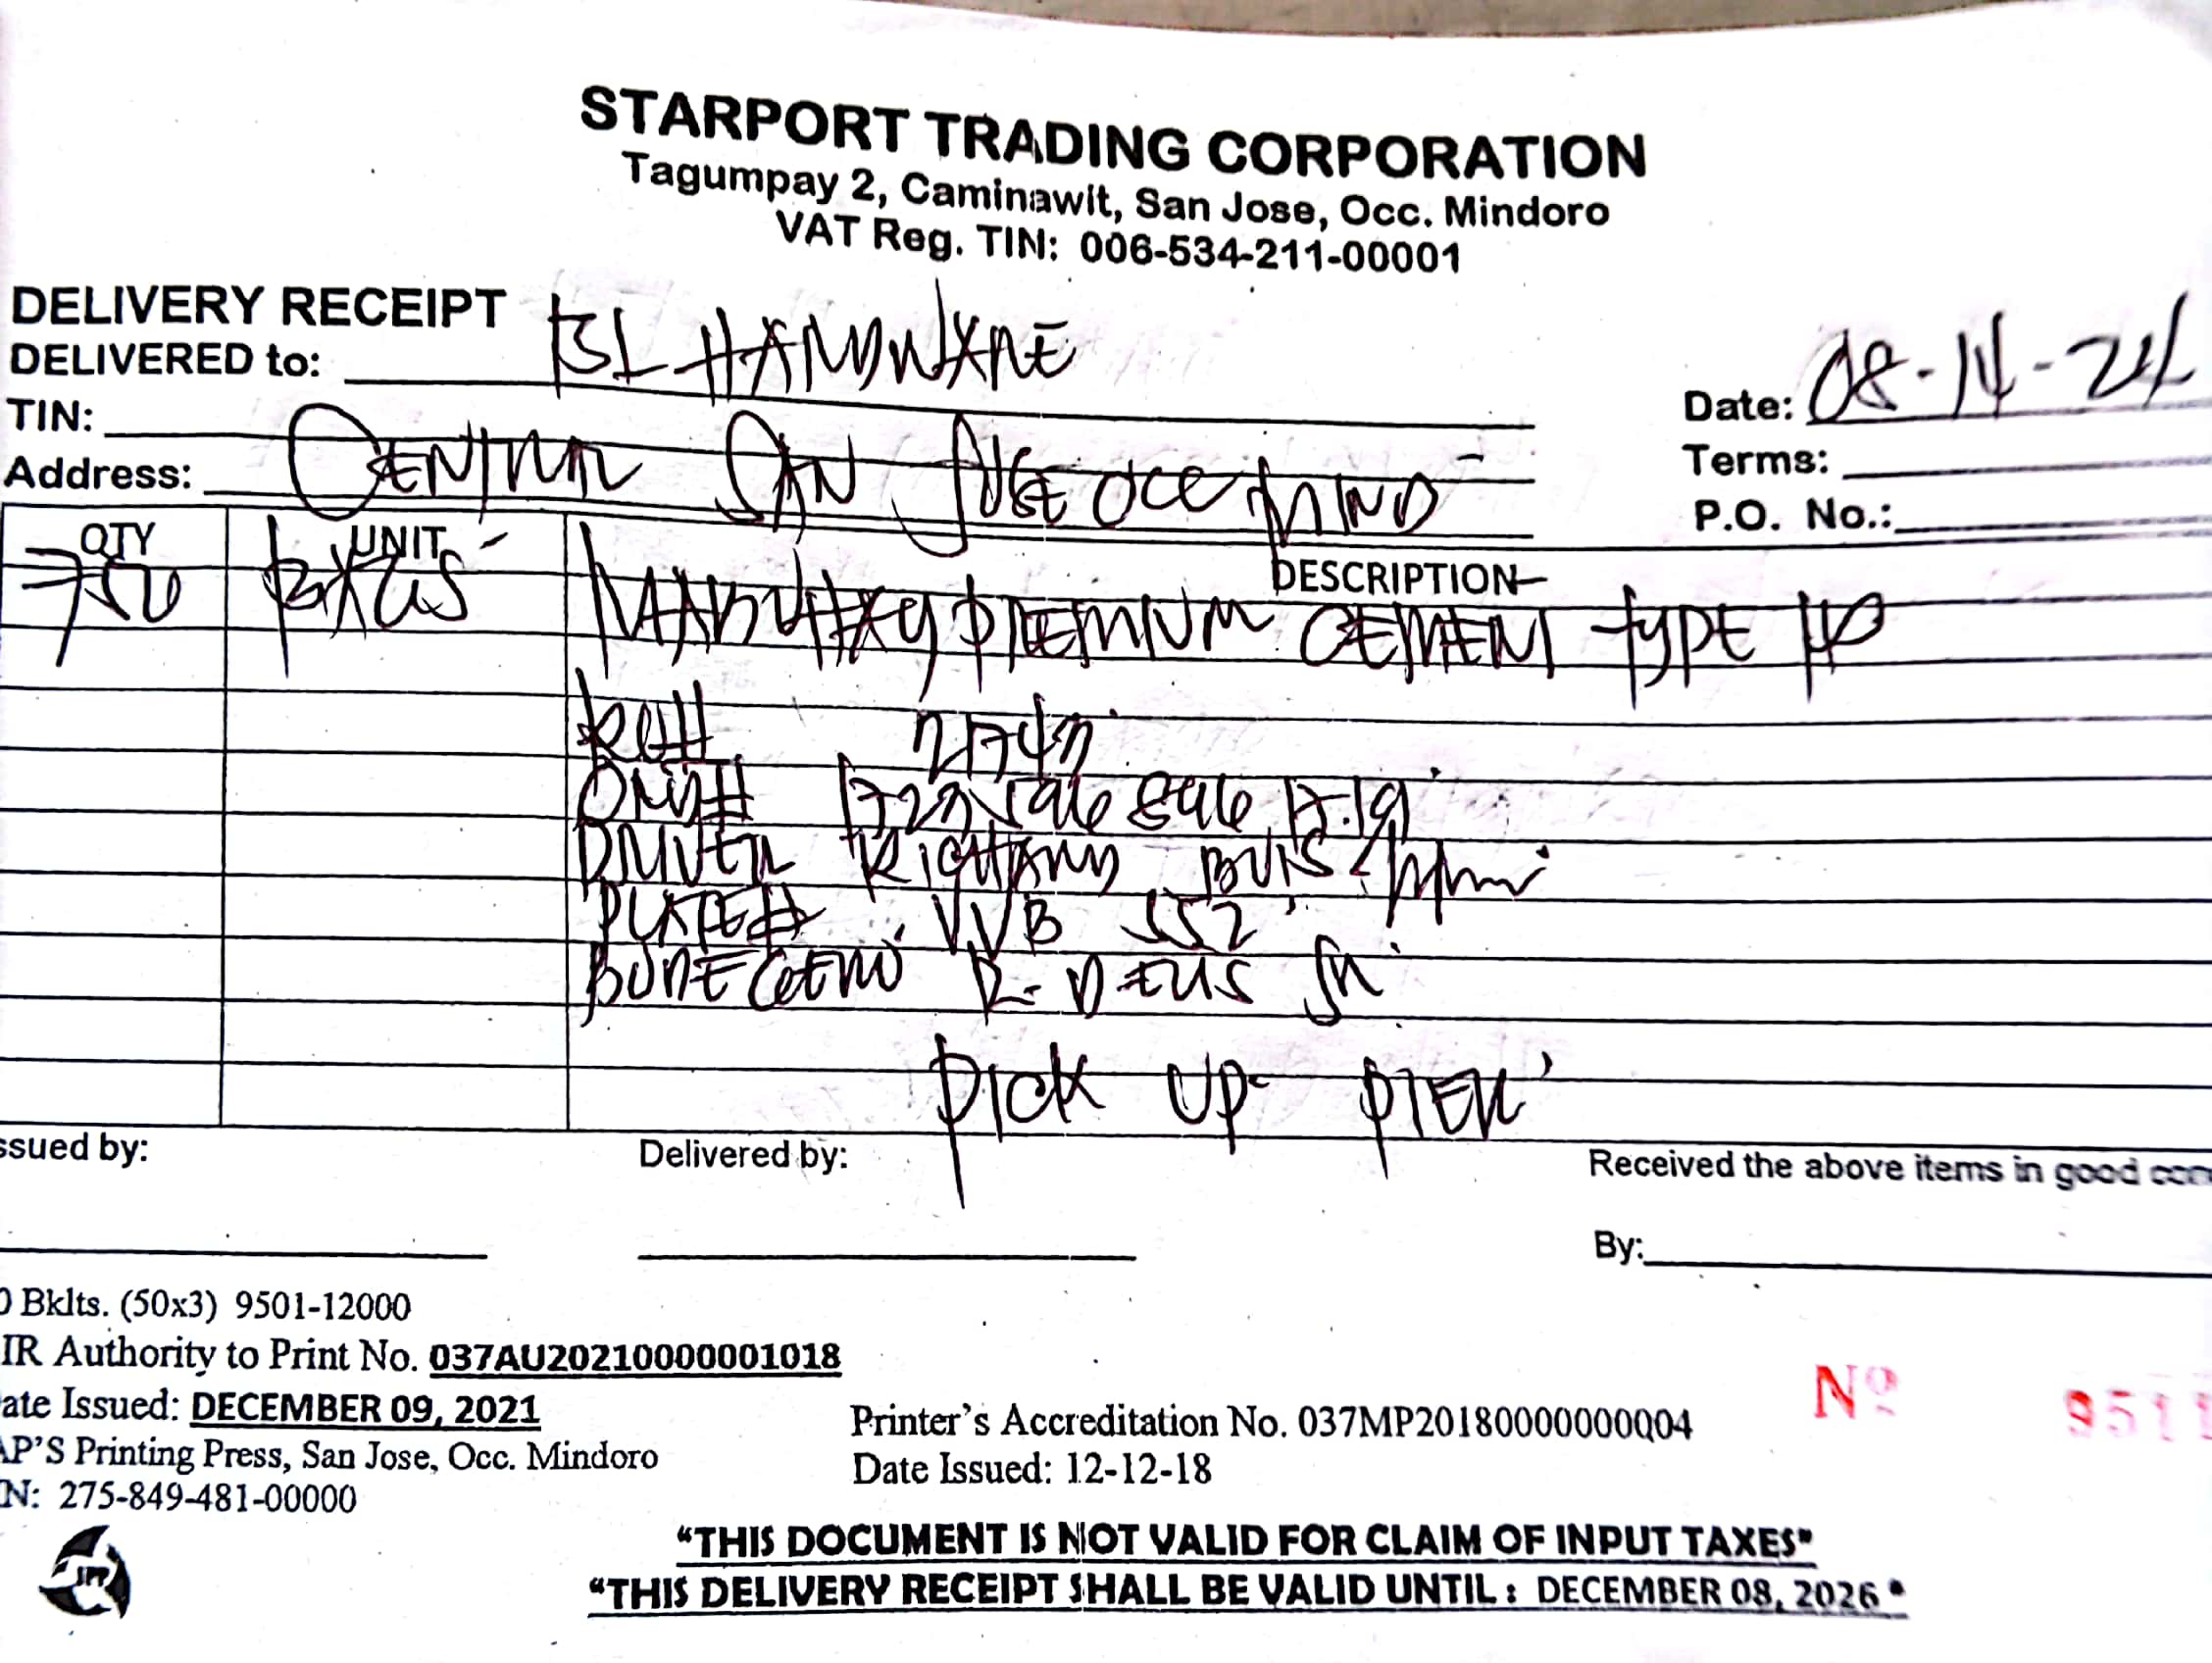 STARPORT TRADING CORPORATION
Tagumpay 2, Caminawit, San Jose, Occ. Mindoro
VAT Reg. TIN: 006-534-211-00001
DELIVERY RECEIPT
DELIVERED to: BL HARDWARE
Date: 08-14-24
TIN:
Terms:
Address: CENTRAL SAN JOSE OCC MINDO
P.O. No.:
QTY UNIT DESCRIPTION
750 BAGS MABUHAY PREMIUM CEMENT TYPE 1P
DRIVER RICHARD
PLATE# VVB 552
PICK UP PIER
ssued by:
Delivered by:
Received the above items in good con
By:
0 Bklts. (50x3) 9501-12000
IR Authority to Print No. 037AU20210000001018
ate Issued: DECEMBER 09, 2021
AP'S Printing Press, San Jose, Occ. Mindoro
N: 275-849-481-00000
Printer's Accreditation No. 037MP20180000000004
Date Issued: 12-12-18
Nº 9511
"THIS DOCUMENT IS NOT VALID FOR CLAIM OF INPUT TAXES"
"THIS DELIVERY RECEIPT SHALL BE VALID UNTIL : DECEMBER 08, 2026"